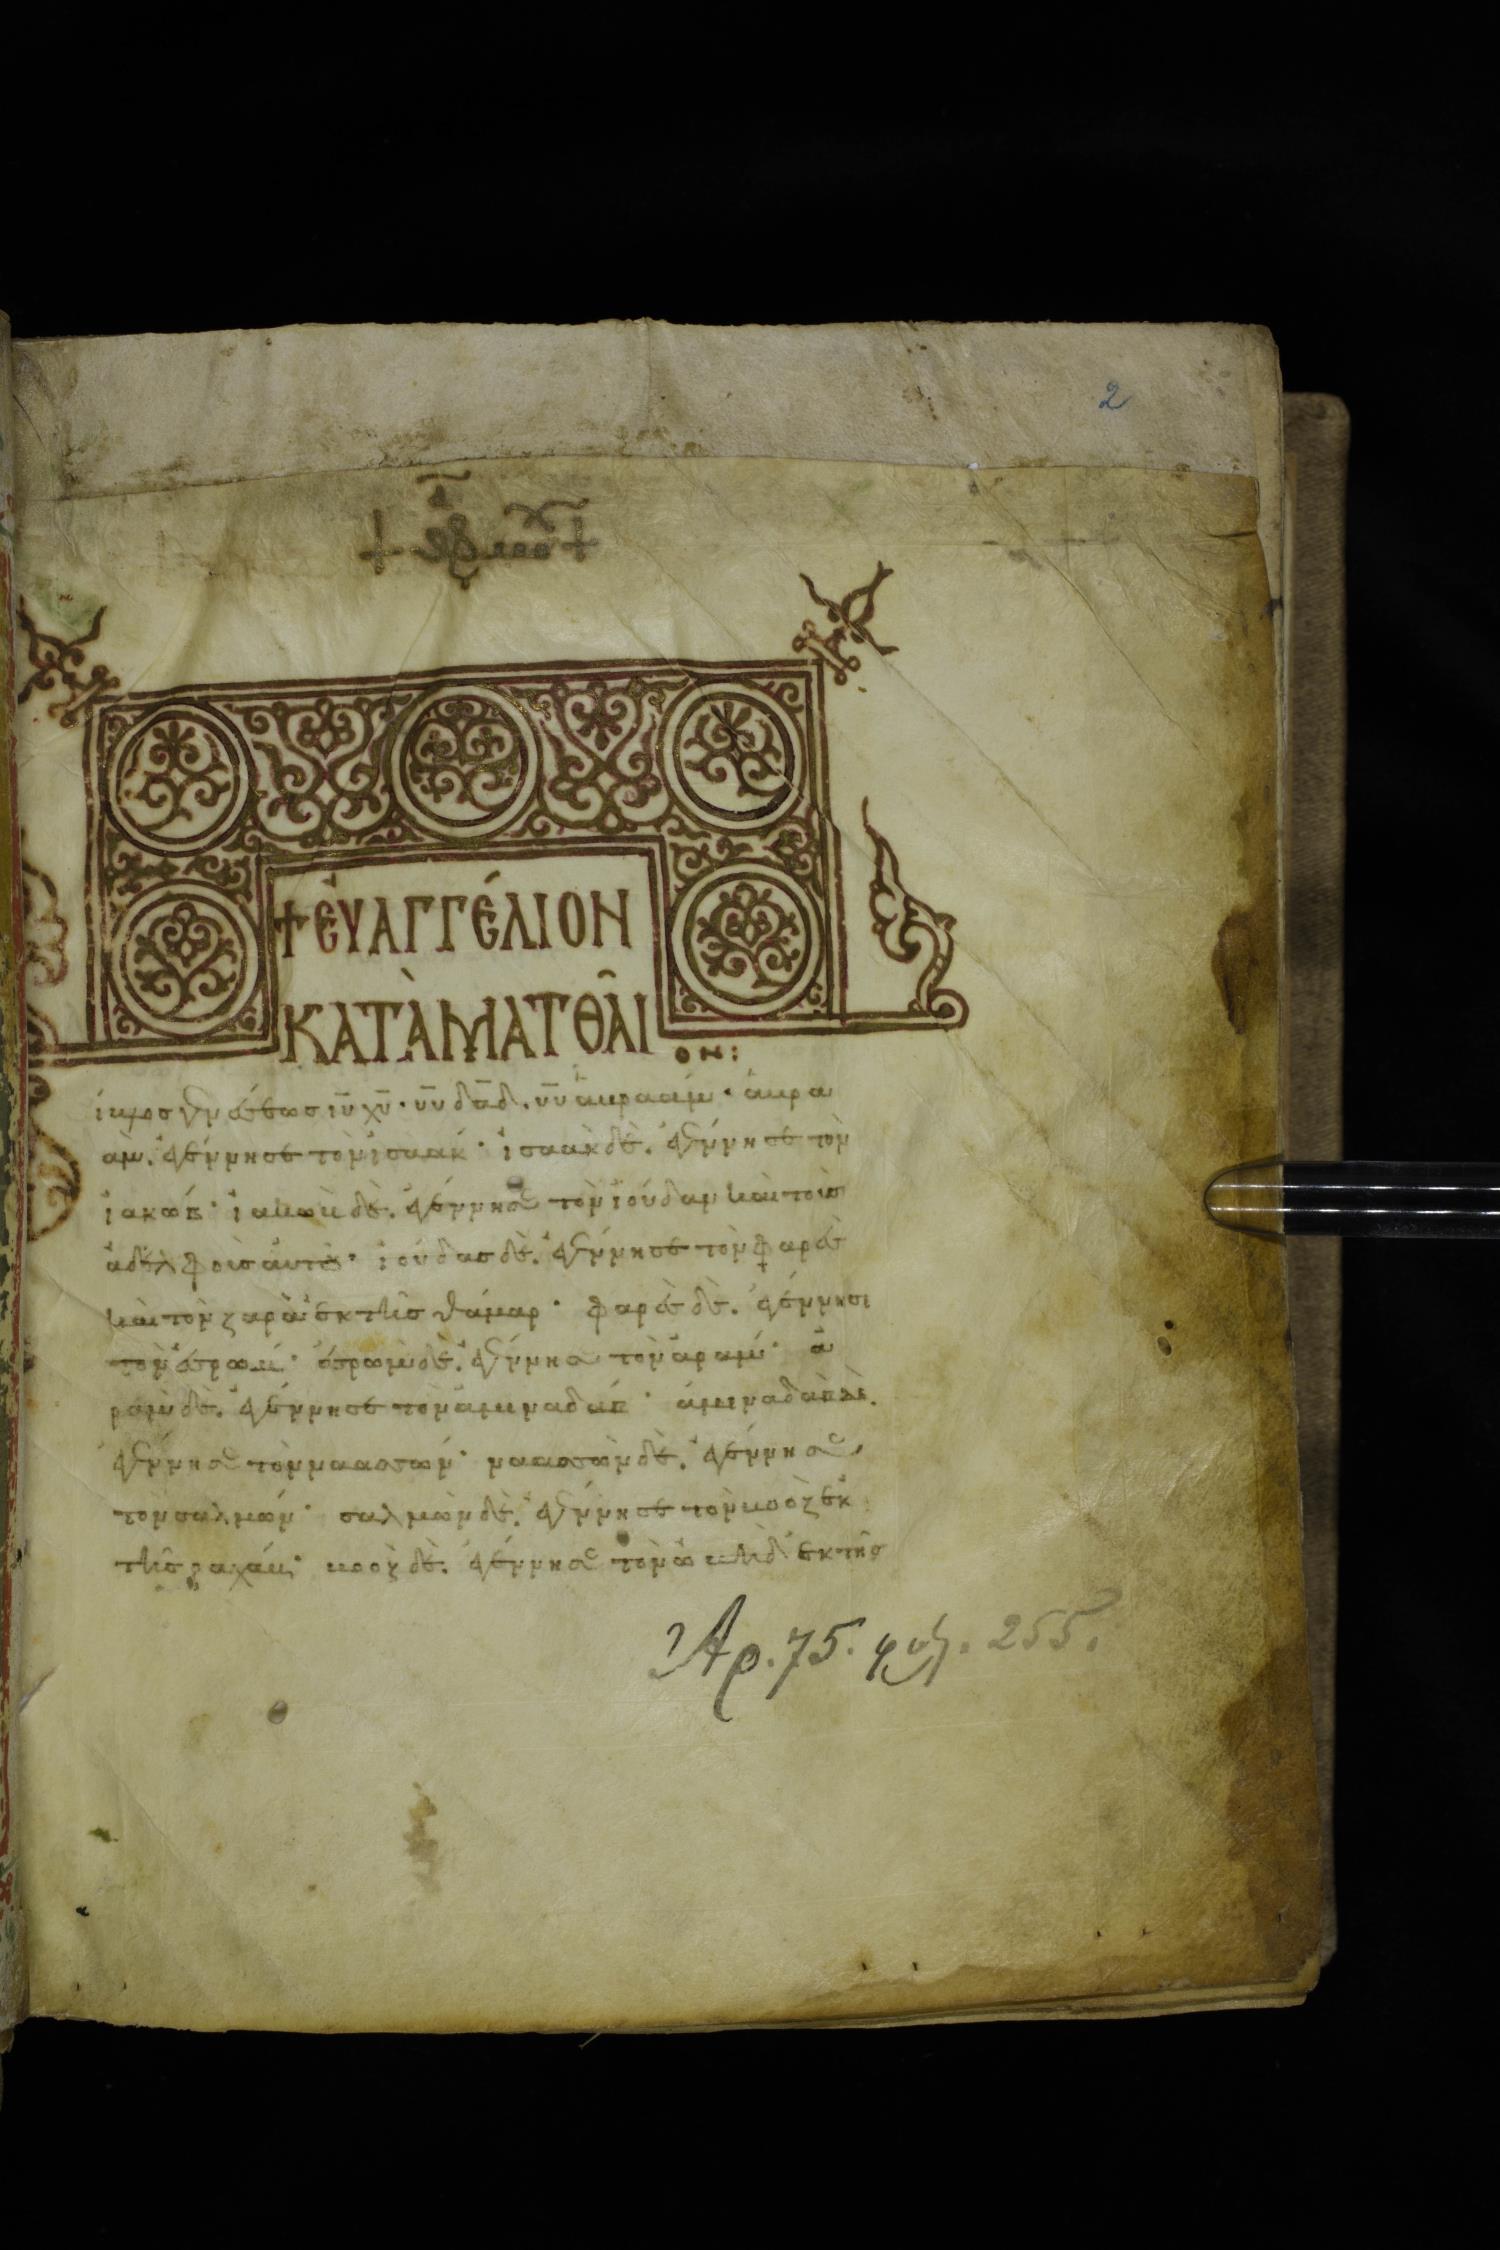 2
+ ἐυαγγέλιον
κατὰ ματθᾶι
ον:
ίβλος γενέσεως ιῦ χῦ · υῦ δᾱδ · υῦ ἀβραάμ · ἀβρα
ὰμ. ἐγέννησε τὸν ἰσαάκ · ἰσαὰκ δὲ. ἐγέννησε τὸν
ἰακώβ · ἰακὼβ δὲ. ἐγέννησε τὸν ἰούδαν καὶ τοὺς
ἀδελφοὺς ἀυτοῦ · ἰούδας δὲ. ἐγέννησε τὸν φαρὲς
καὶ τὸν ζαρὰ ἐκ τῆς θάμαρ · φαρὲς δὲ. ἐγέννησε
τὸν ἐσρώμ · ἐσρὼμ δὲ. ἐγέννησε τὸν ἀράμ · ἀ
ρὰμ δὲ. ἐγέννησε τὸν ἀμιναδάβ · ἀμιναδὰβ δὲ.
ἐγέννησε τὸν ναασσών · ναασσὼν δὲ. ἐγέννησε
τὸν σαλμών · σαλμὼν δὲ. ἐγέννησε τὸν βοὸζ ἐκ
τῆς ραχάβ · βοὸζ δὲ. ἐγέννησε τὸν ὠβὴδ ἐκ τῆς
Ἀρ. 75. φύλ. 255.